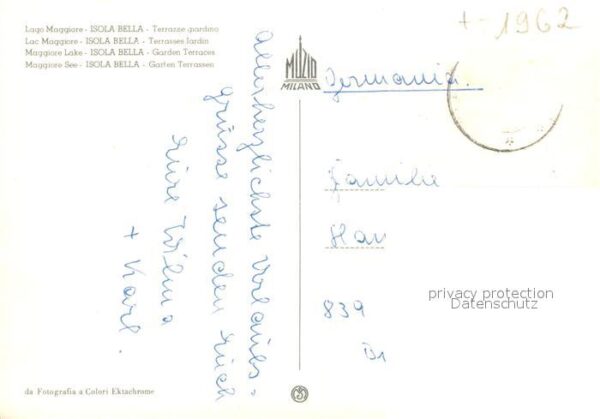 Lago Maggiore - ISOLA BELLA - Terrazze giardino
Lac Maggiore - ISOLA BELLA - Terrasses Jardin
Maggiore Lake - ISOLA BELLA - Garden Terraces
Maggiore See - ISOLA BELLA - Garten Terrassen
Allerherzlichste Urlaubs-
grüsse senden Euch
Eure Wilma
+ Karl.
da Fotografia a Colori Ektachrome
MUZIO
MILANO
+-1962
Germania.
Familie
839
privacy protection
Datenschutz